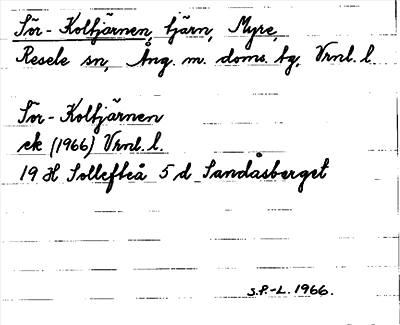 Sör-Koltjärnen, tjärn, Myre,
Resele sn, Ång. m. doms. tg, Vrnl. l.
Sör-Koltjärnen
ek (1966) Vrnl. l.
19 H Sollefteå 5 d Sandåsberget
S.P.-L. 1966.